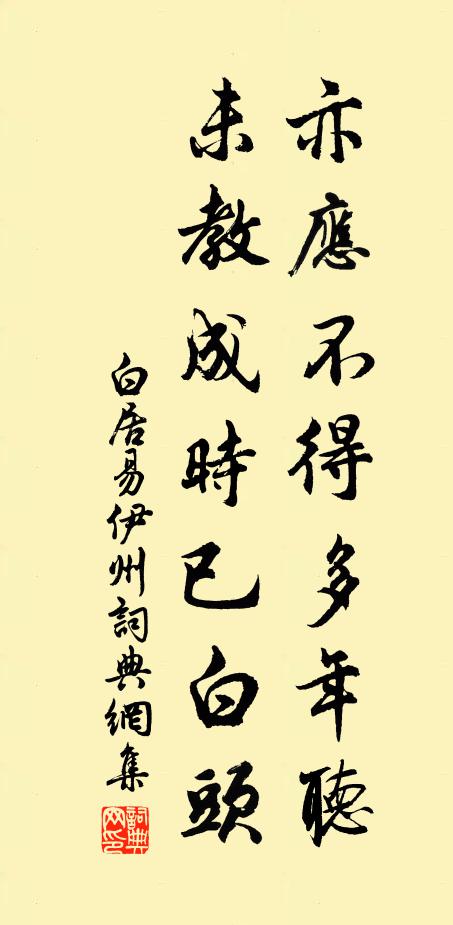 亦應不得多年聽
未教成時已白頭
白居易伊州詞典網集
詞典網印